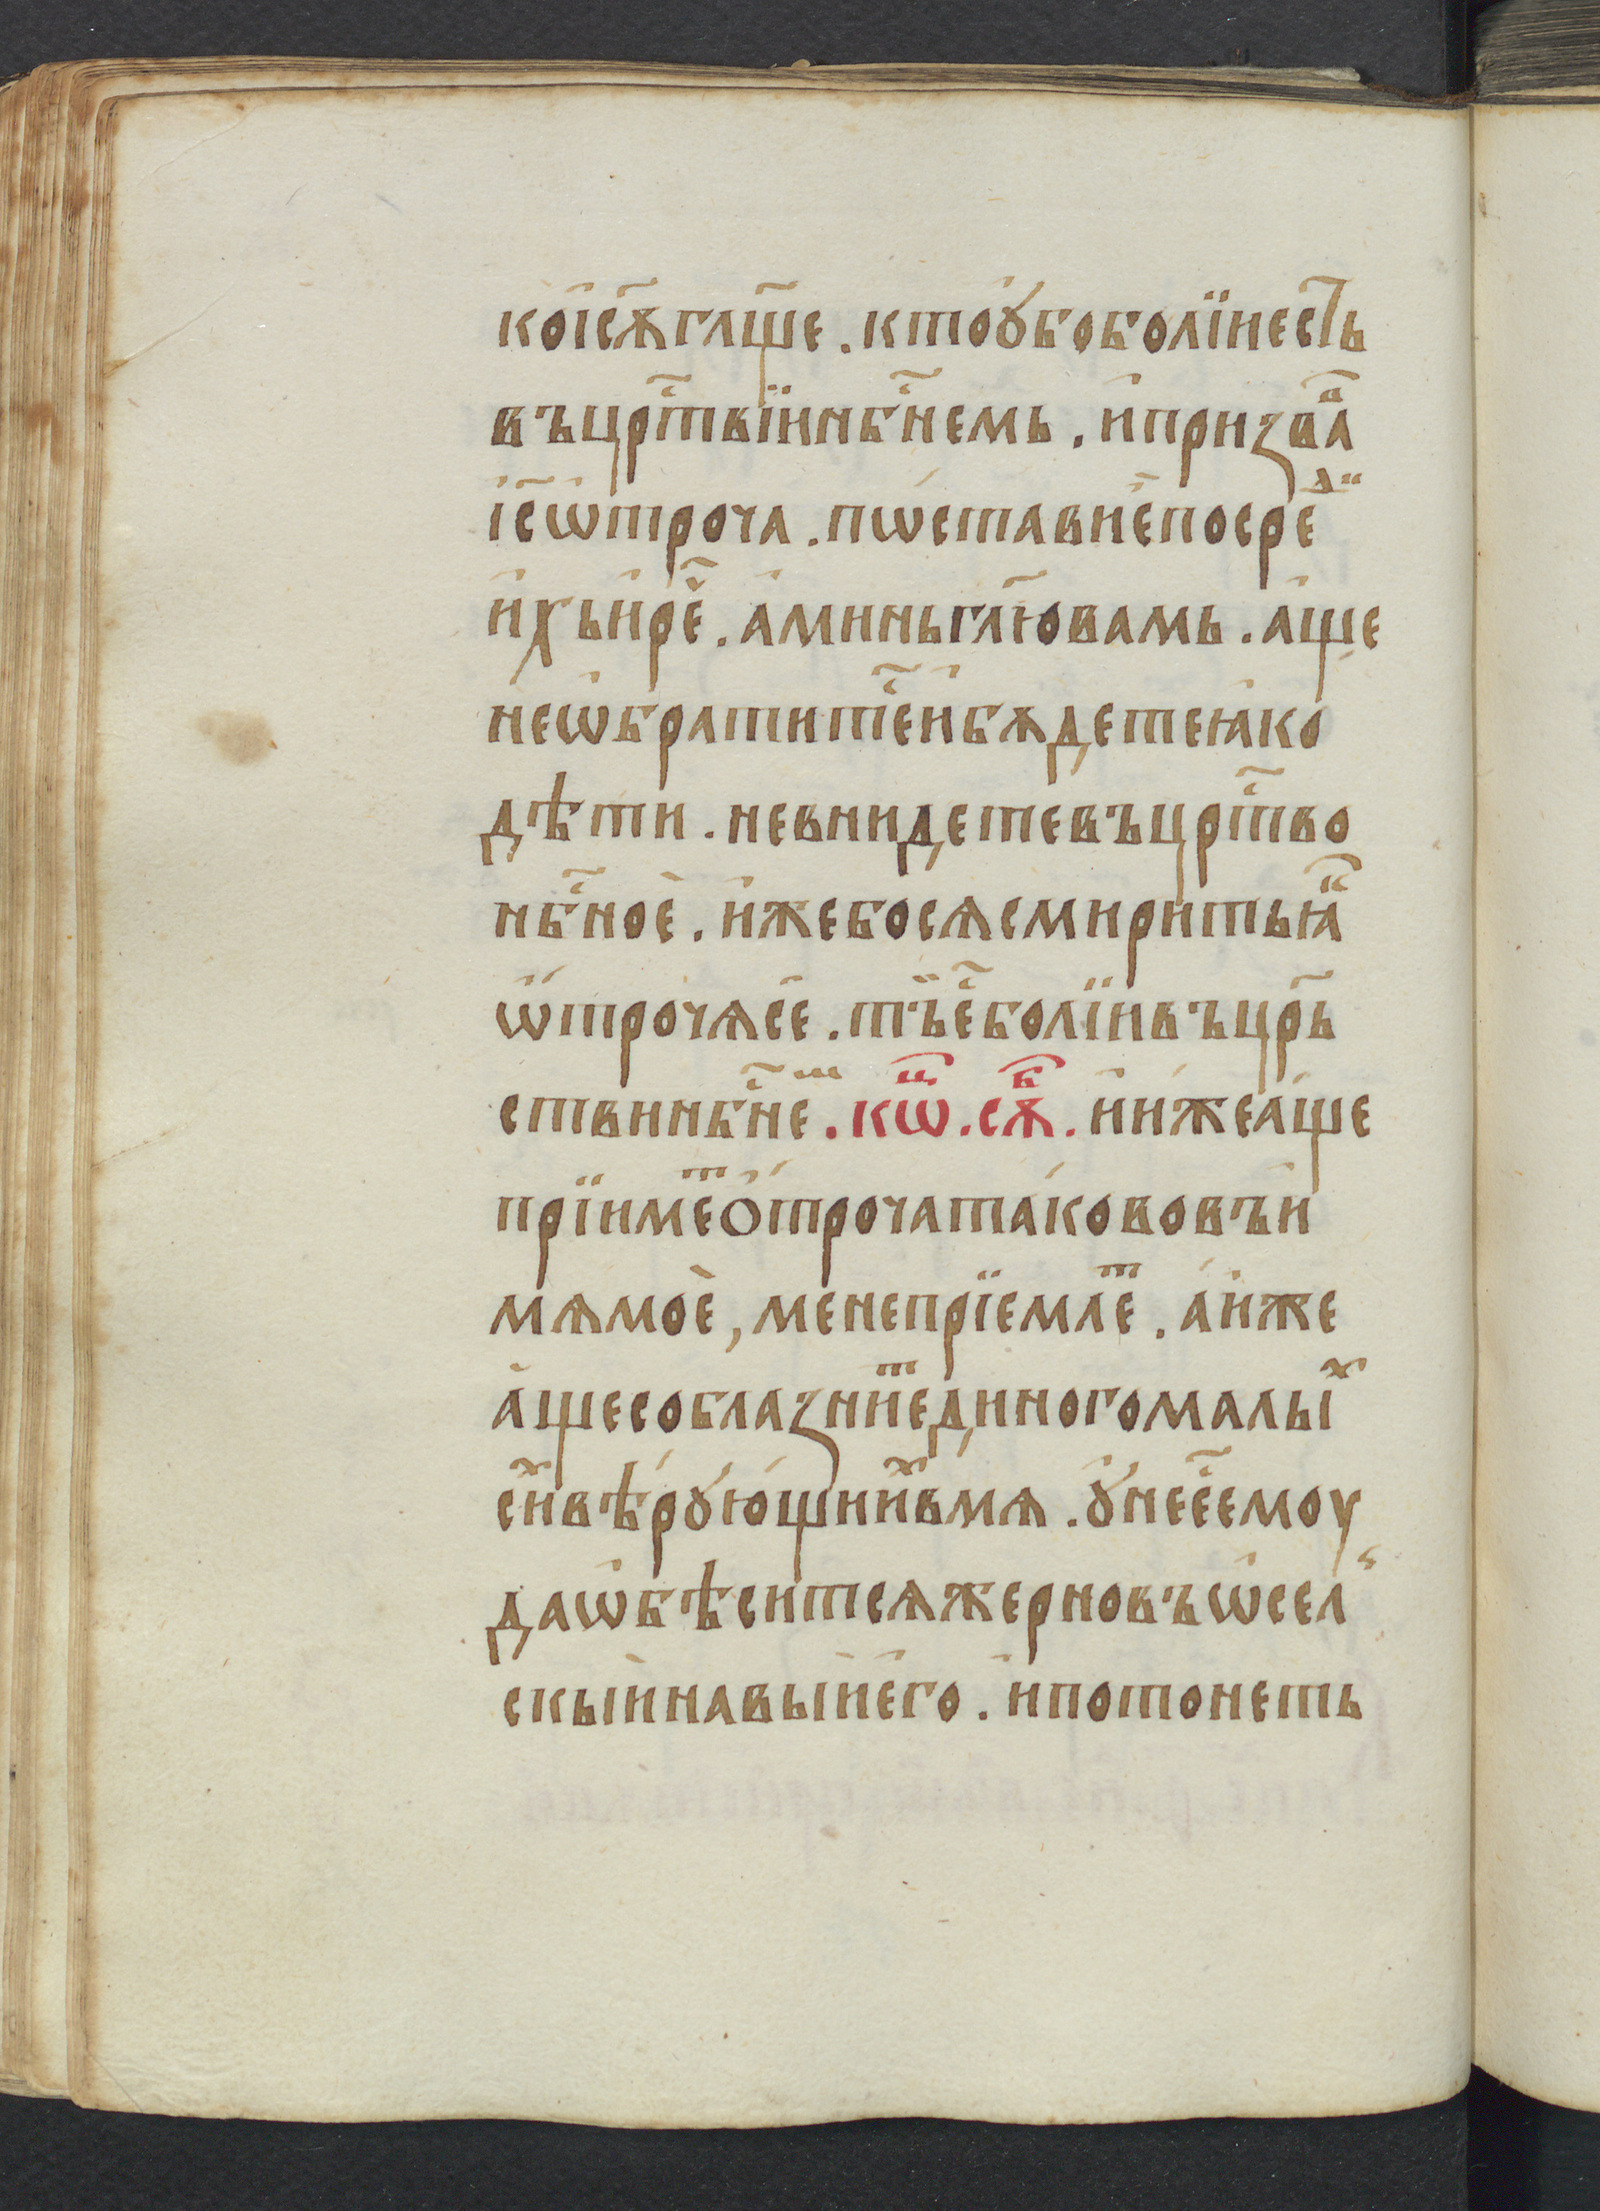 ко і҆с҃ѧ гл҃ще . кто ᲂу҆бо болїи несть
въ цр҇твїи нб҇немь . и҆ призвл҃а
і҆с҃ ѡ҆троча . пѡставиѐ посреⷣ
и҆хъ и҆ ре҇ . а҆минь гл҃ю вамь . а҆ще
не ѡ҆братите҇ и҆ бѫдете ꙗ҆ко
дѣти . не вnидете въ цр҇тво
нб҇ноѐ . и҆же бо сѧ смирить ꙗ҆ⷦ
ѡ҆трочѧ сѐ . тъ́ е҇ болїи въ цр҃ь
стви нб҇неⷨ . кѡⷩ҇ . сѫⷠ҇ . и҆ и҆же а҆ще
прїимеⷮ ѻ҆троча таково въ и҆
мѧ моѐ , мене прїемлеⷮ . а҆ и҆же
а҆ще соблазниⷮ единого малыⷯ
сиⷯ вѣрꙋющииⷯ в мѧ . ᲂу҆не е҇ емоу
да ѡ҆бѣситсѧ жерновъ ѡ҆сел
скыи на выи е҆го . и҆ потонеть